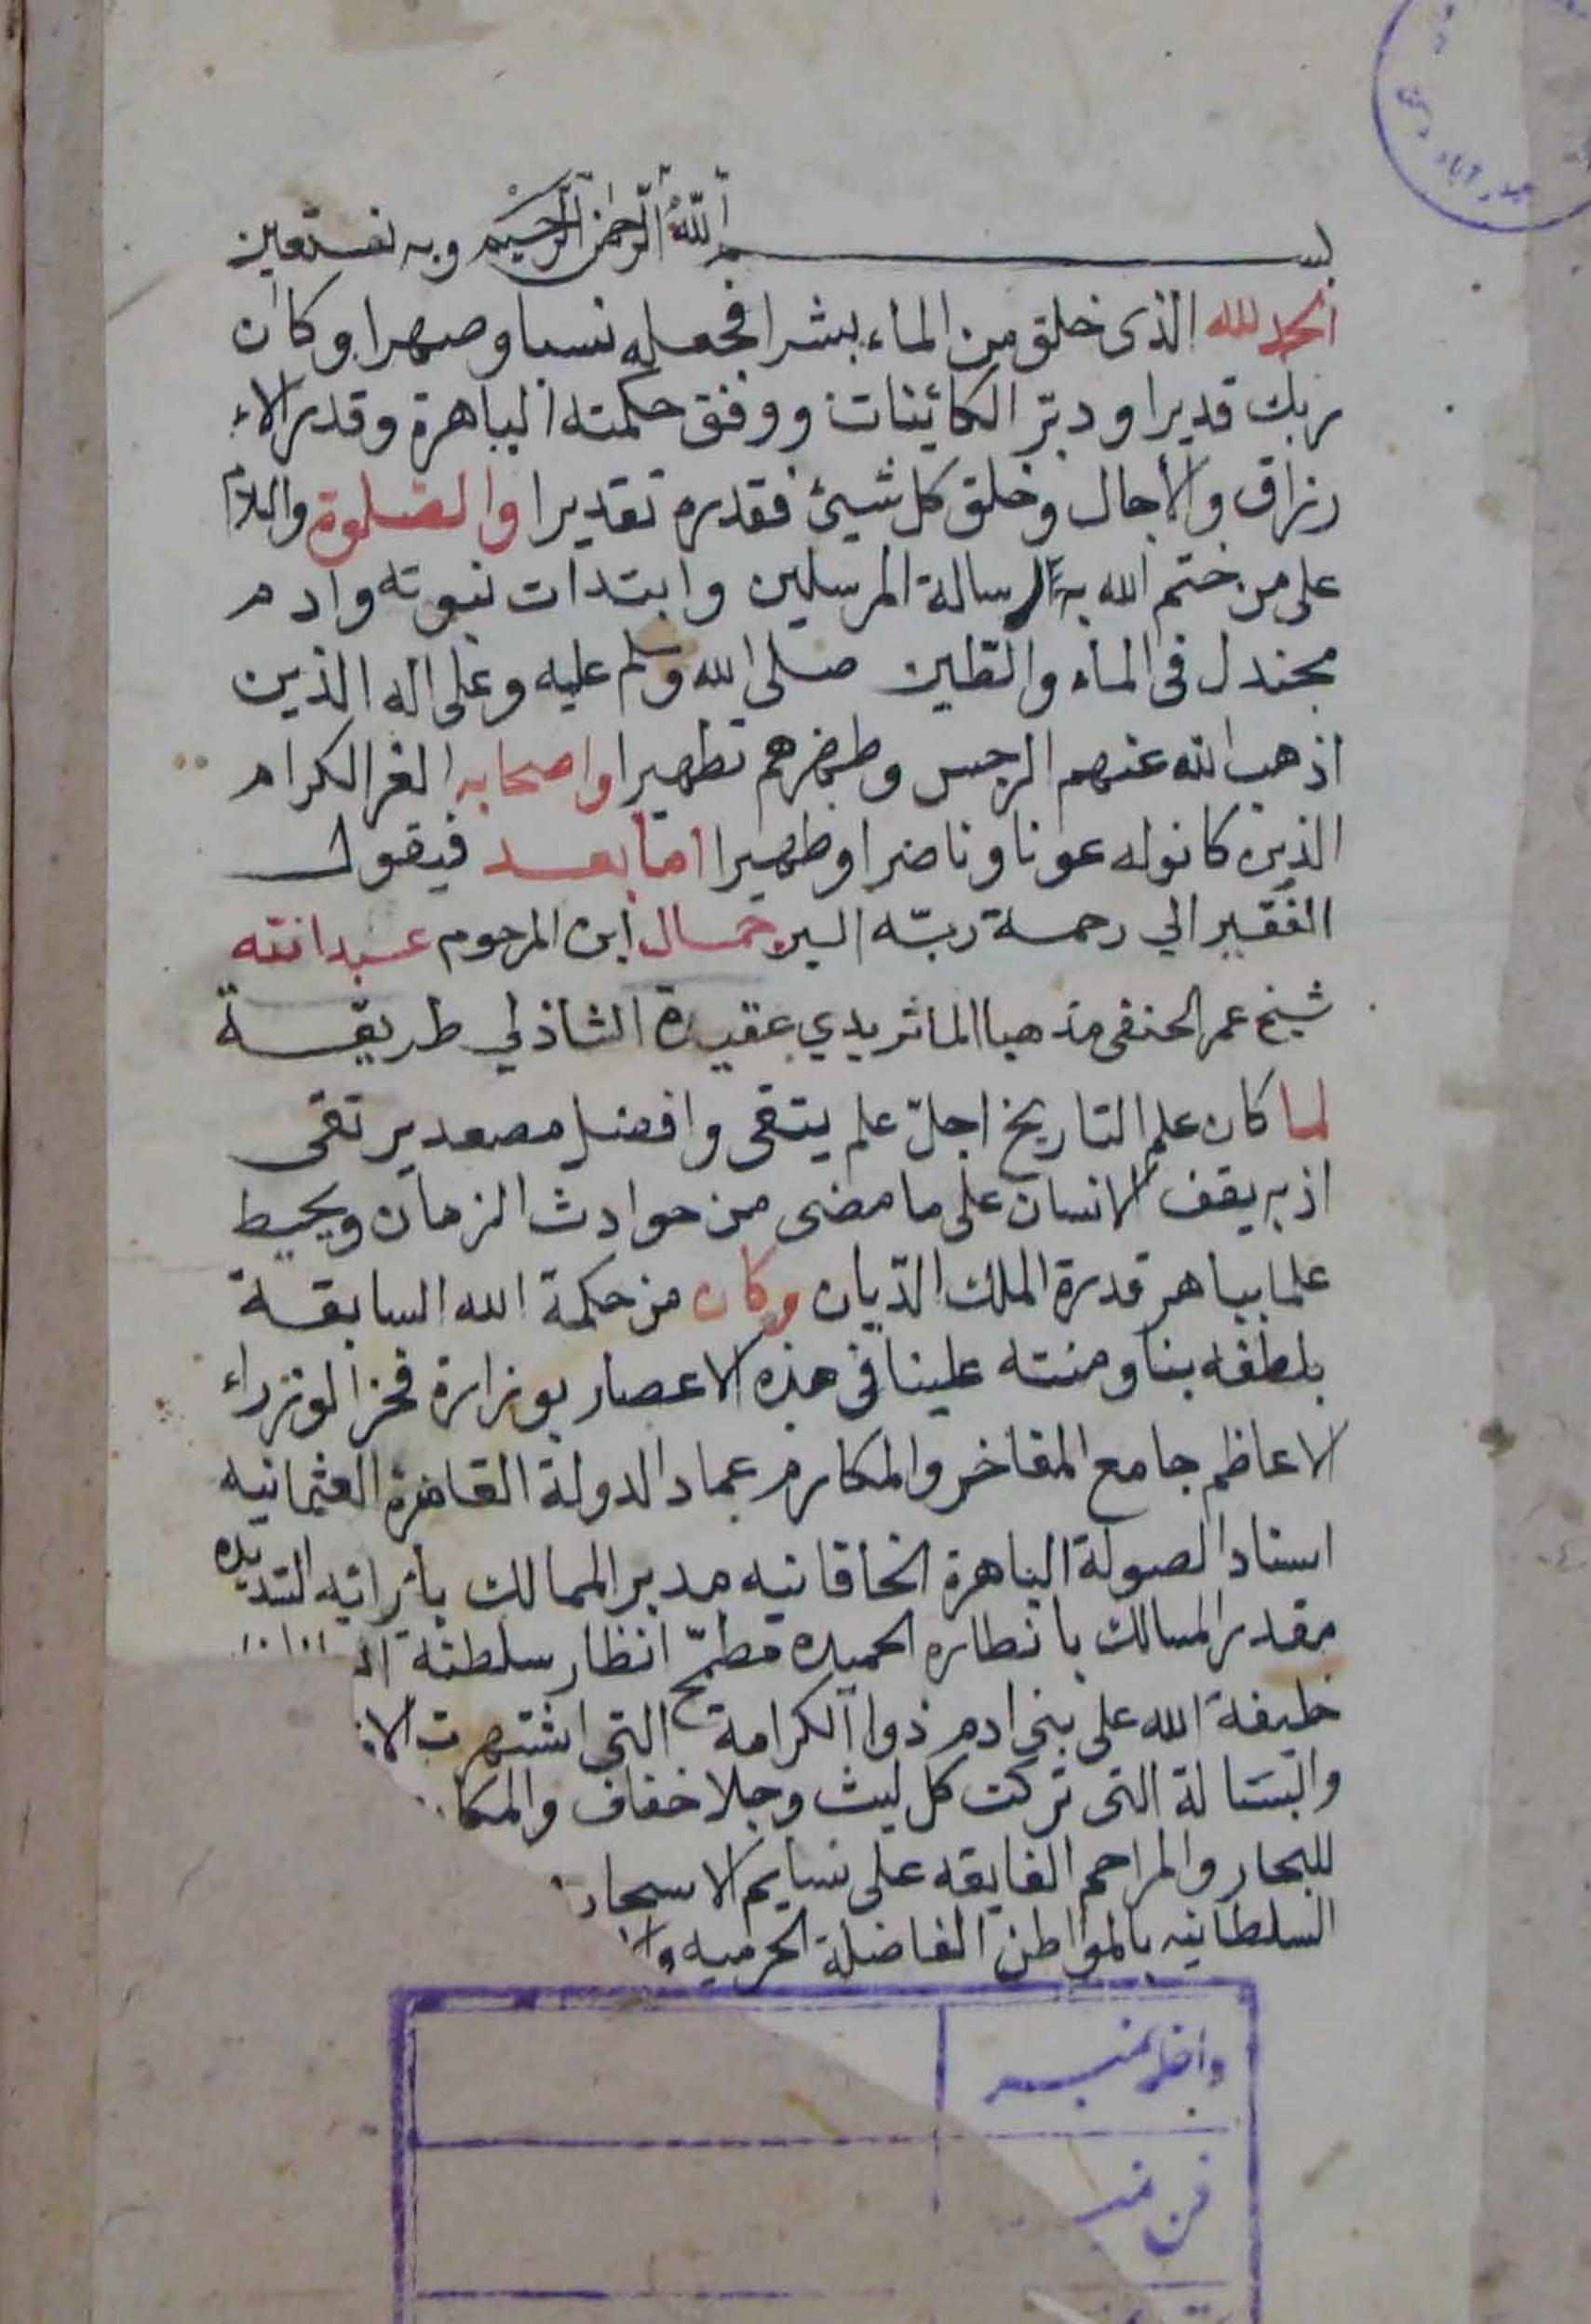 بسم الله الرحمن الرحيم وبه نستعين
الحمد لله الذى خلق من الماء بشرا فجعله نسبا وصهرا وكان
ربك قديرا ودبّر الكائينات ووفق حكمته الباهرة وقدر الاء
رزاق والأجال وخلق كل شيئ فقدره تقديرا والصلوة والسلام
على من ختم الله به الرسالة المرسلين وابتدات نبوته وادم
مجندل فى الماء والطين صلى الله وسلم عليه وعلى اله الذين
اذهب الله عنهم الرجس وطهرهم تطهيرا واصحابه الغر الكرام
الذين كانوله عونا وناصرا وظهيرا اما بعد فيقول
الفقير الي رحمة ربّه السير جمال ابن المرحوم عبد الله
شيخ عمر الحنفى مذهبا الماثريدي عقيدة الشاذلي طريقة
لما كان علم التاريخ اجلّ علم ينتقى وافضل مصعد يرتقى
اذ به يقف الانسان على ما مضى من حوادث الزمان ويحيط
علما بباهر قدرة الملك الديان وكان من حكمة الله السابقة
بلطفه بنا ومنته علينا فى هذه الاعصار بوزارة فخر الوزراء
الاعاظم جامع المفاخر والمكارم عماد الدولة القاهرة العثمانيه
اسناد الصولة الباهرة الخاقانيه مدبر الممالك بأرائه السديده
مقدر المسالك بانظاره الحميده مطمّح انظار سلطنة
خليفة الله على بنى ادم ذوا الكرامة التى اشتهرت
والبسالة التى تركت كل ليث وجلا خفاف
للبحار والمراحم الفايقه على نسايم الاسحار
السلطانيه بالمواطن الفاضلة الحرميه
داخلہ نمبر
فن نمبر
حیدرآباد دکن